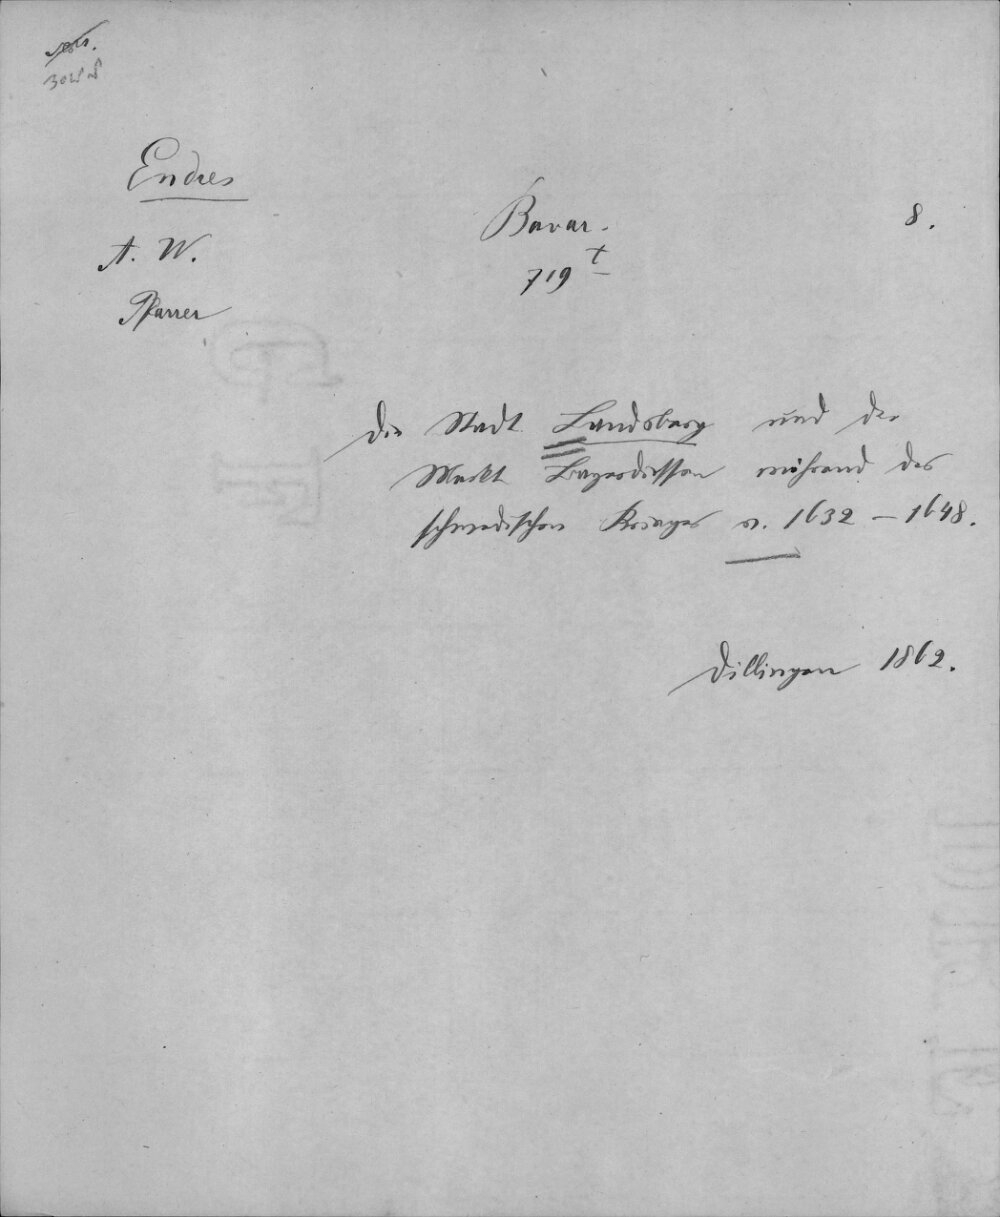 Endres
A. W.
Pfarrer
Bavar.
719 t
8.
Die Stadt Landsberg und der
Markt Bayerdiessen während des
schwedischen Krieges v. 1632 – 1648.
Dillingen 1862.